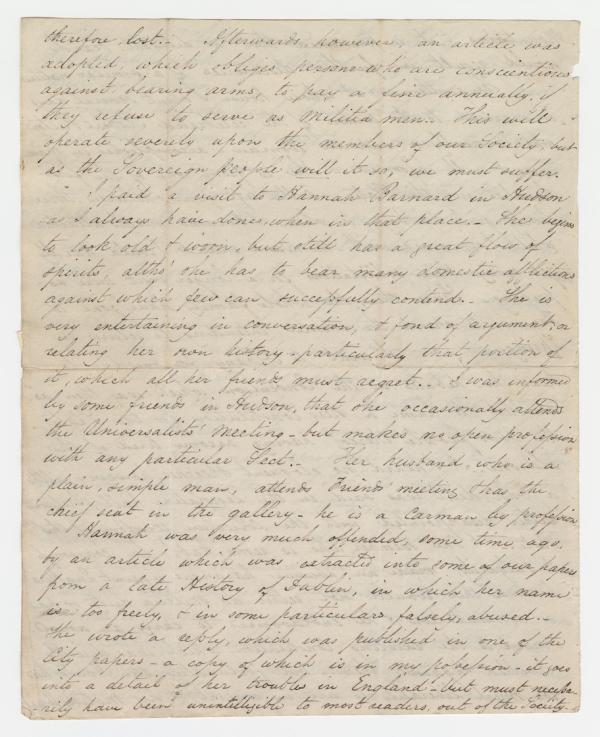 therefore, lost.- Afterwards, however, an article was
adopted, which obliges persons who are conscientious
against bearing arms, to pay a fine annually, if
they refuse to serve as militia men.. This will
operate severely upon the members of our Society, but
as the Sovereign people will it so, we must suffer.
I paid a visit to Hannah Barnard in Hudson
as I always have done, when in that place.- She begins
to look old & worn, but still has a great flow of
spirits, altho' she has to bear many domestic afflictions
against which few can successfully contend.- She is
very entertaining in conversation, & fond of argument, or
relating her own history - particularly that portion of
it, which all her friends must regret.. I was informed
by some friends in Hudson, that she occasionally attends
the Universalists' meeting - but makes no open profession
with any particular Sect.- Her husband, who is a
plain, simple man, attends Friends meeting & has the
chief seat in the gallery - he is a Carman by profession
Hannah was very much offended, some time ago,
by an article which was extracted into some of our papers
from a late History of Dublin, in which her name
is too freely, & in some particulars, falsely, abused.-
She wrote a reply, which was published in one of the
City papers - a copy of which is in my possession - it goes
into a detail of her troubles in England - but must necessa-
rily have been unintelligible to most readers, out of the Society.